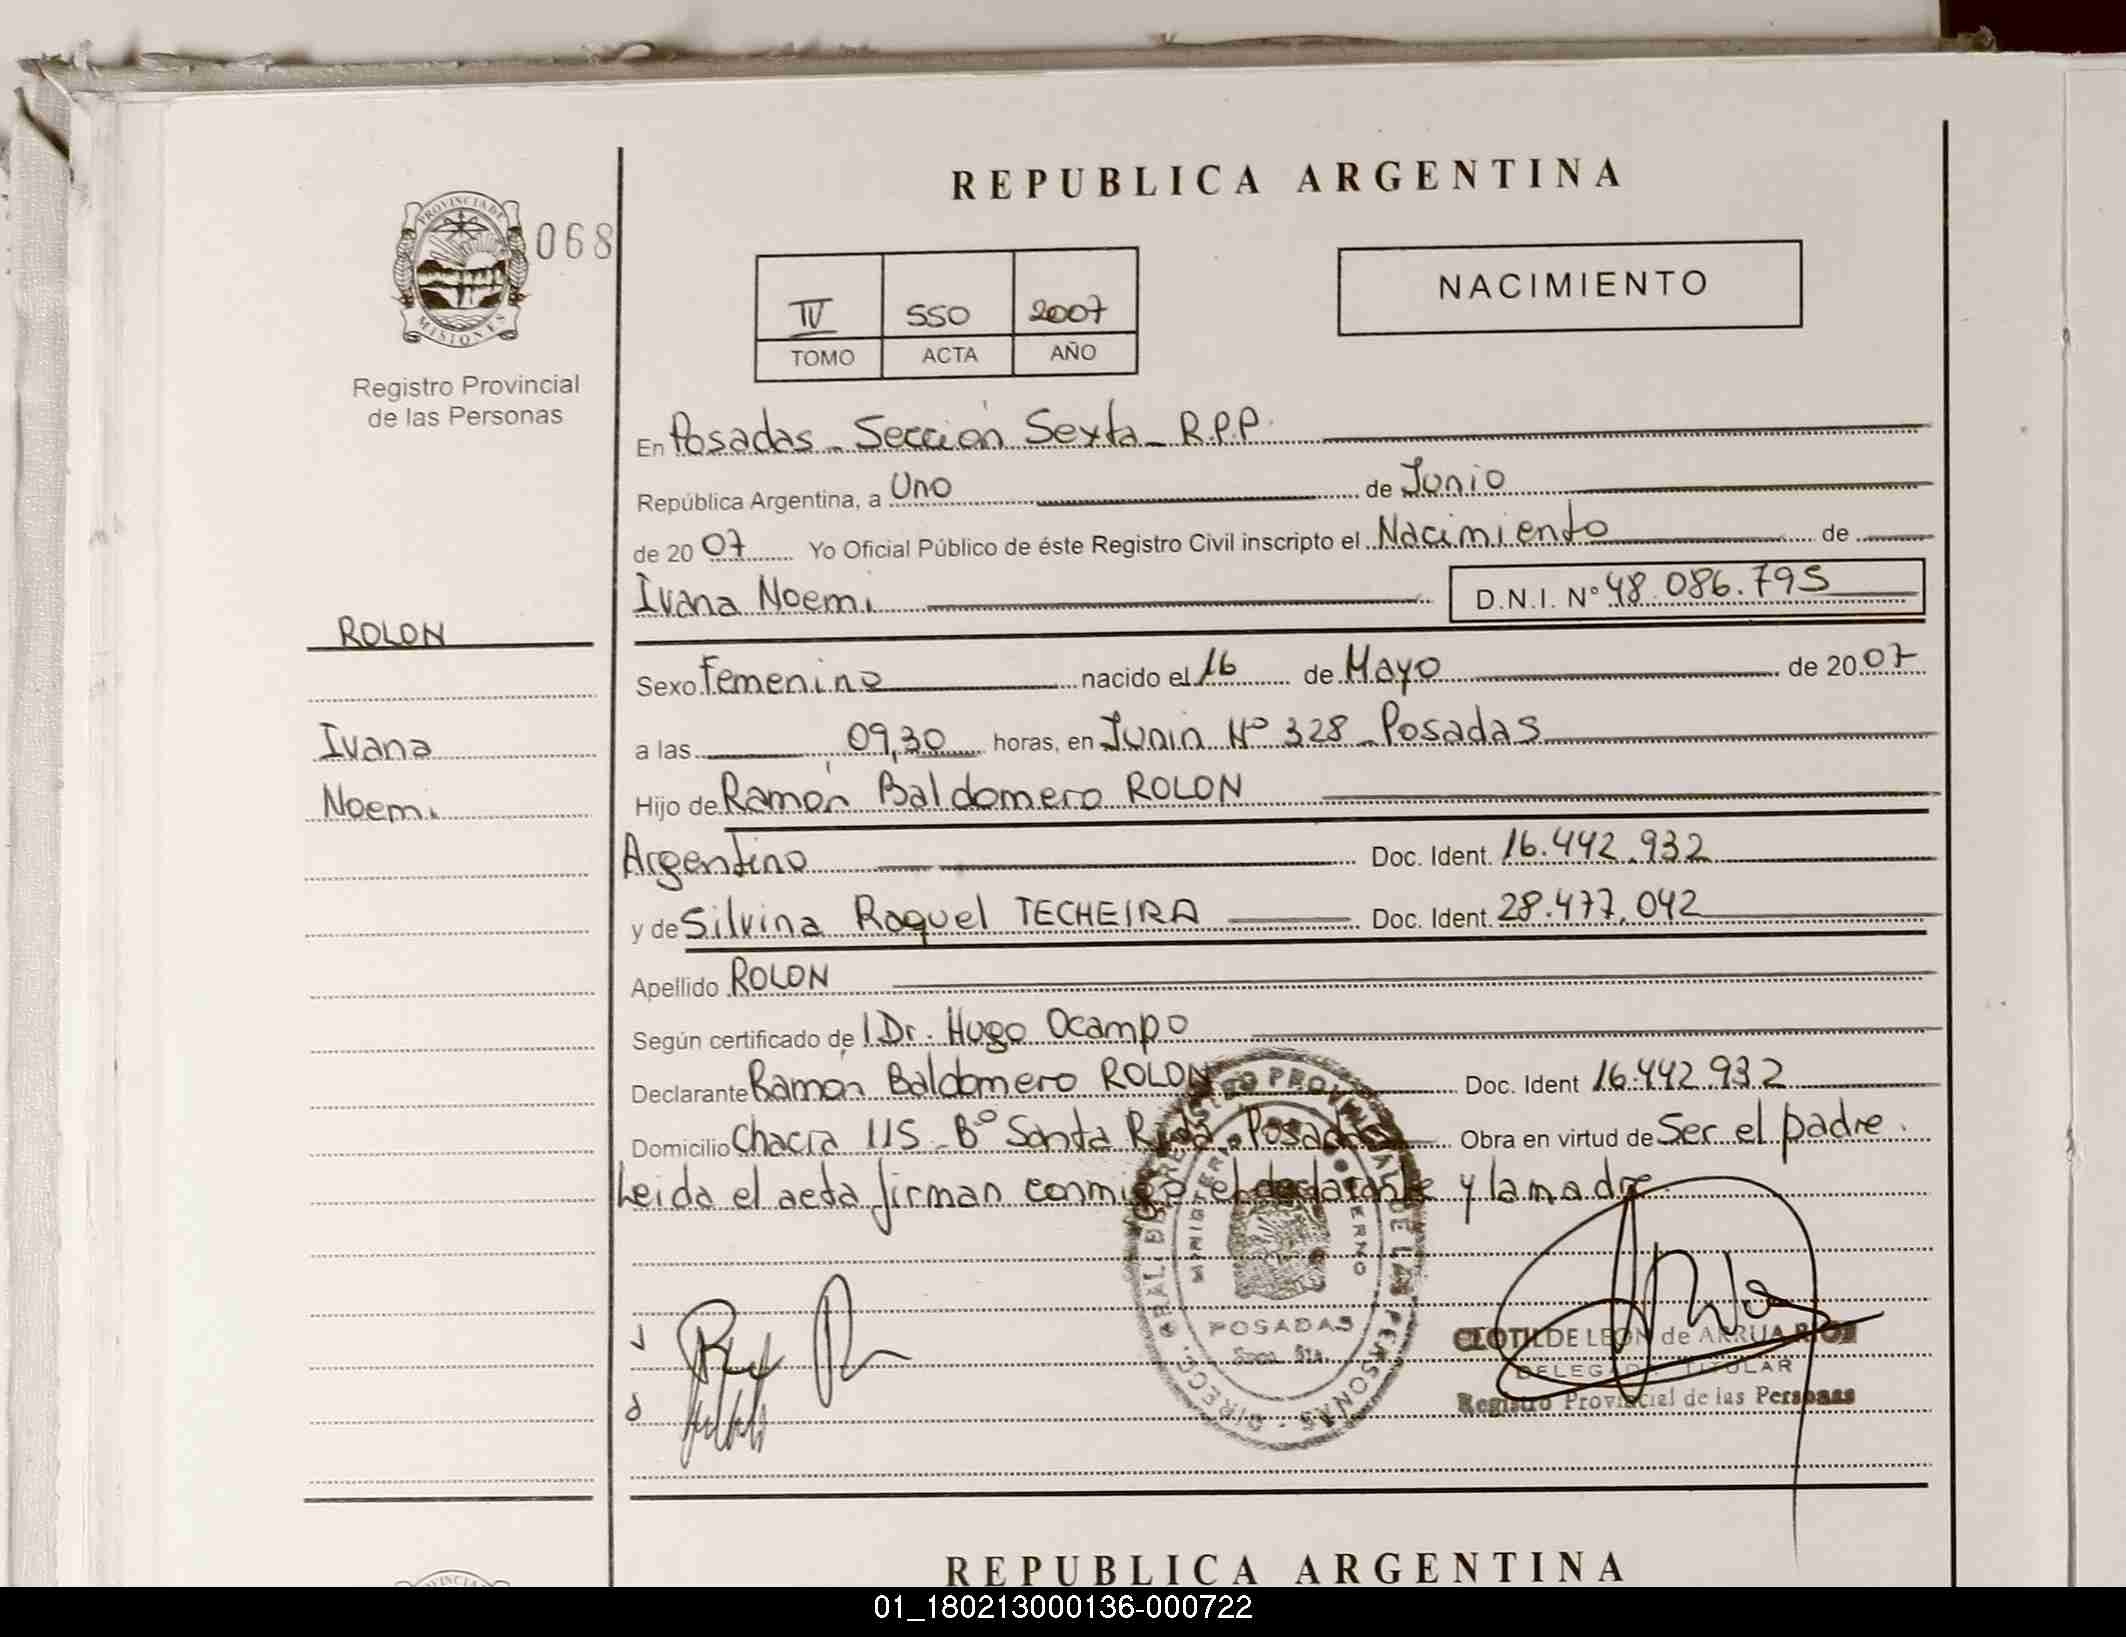 REPUBLICA ARGENTINA
PROVINCIA DE
MISIONES
068
Registro Provincial
de las Personas
IV 550 2007
TOMO ACTA AÑO
NACIMIENTO
En Posadas - Sección Sexta - R.P.P.
República Argentina, a Uno de Junio
de 2007 Yo Oficial Público de éste Registro Civil inscripto el Nacimiento de
Ivana Noemi D.N.I. Nº 48.086.795
ROLON
Ivana
Noemi
Sexo Femenino nacido el 16 de Mayo de 2007
a las 09,30 horas, en Junin Nº 328 - Posadas
Hijo de Ramón Baldomero ROLON
Argentino Doc. Ident. 16.442.932
y de Silvina Raquel TECHEIRA Doc. Ident. 28.477.042
Apellido ROLON
Según certificado de l Dr. Hugo Ocampo
Declarante Ramón Baldomero ROLON Doc. Ident 16.442.932
Domicilio Chacra 115 - Bº Santa Rita - Posadas Obra en virtud de Ser el padre.
Leida el acta firman conmigo el declarante y la madre
POSADAS
Secc. 6ta.
CLOTILDE LEON de ARRUA
DELEGADA TITULAR
Registro Provincial de las Personas
REPUBLICA ARGENTINA
01_180213000136-000722